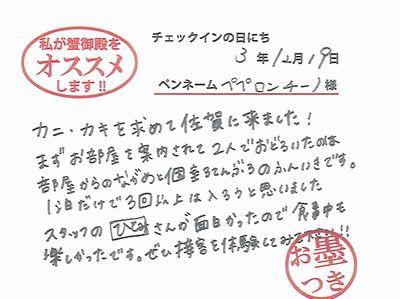 私が蟹御殿を
オススメ
します!!
チェックインの日にち
3年12月19日
ペンネーム ペペロンチーノ 様
カニ・カキを求めて佐賀に来ました!
まずお部屋を案内されて2人でおどろいたのは
部屋からのながめと個室ろてんぶろのふんいきです。
1泊だけで3回以上は入ろうと思いました
スタッフの ひとみ さんが面白かったので食事中も
楽しかったです。ぜひ接客を体験してみて下さい!!
お墨
つき